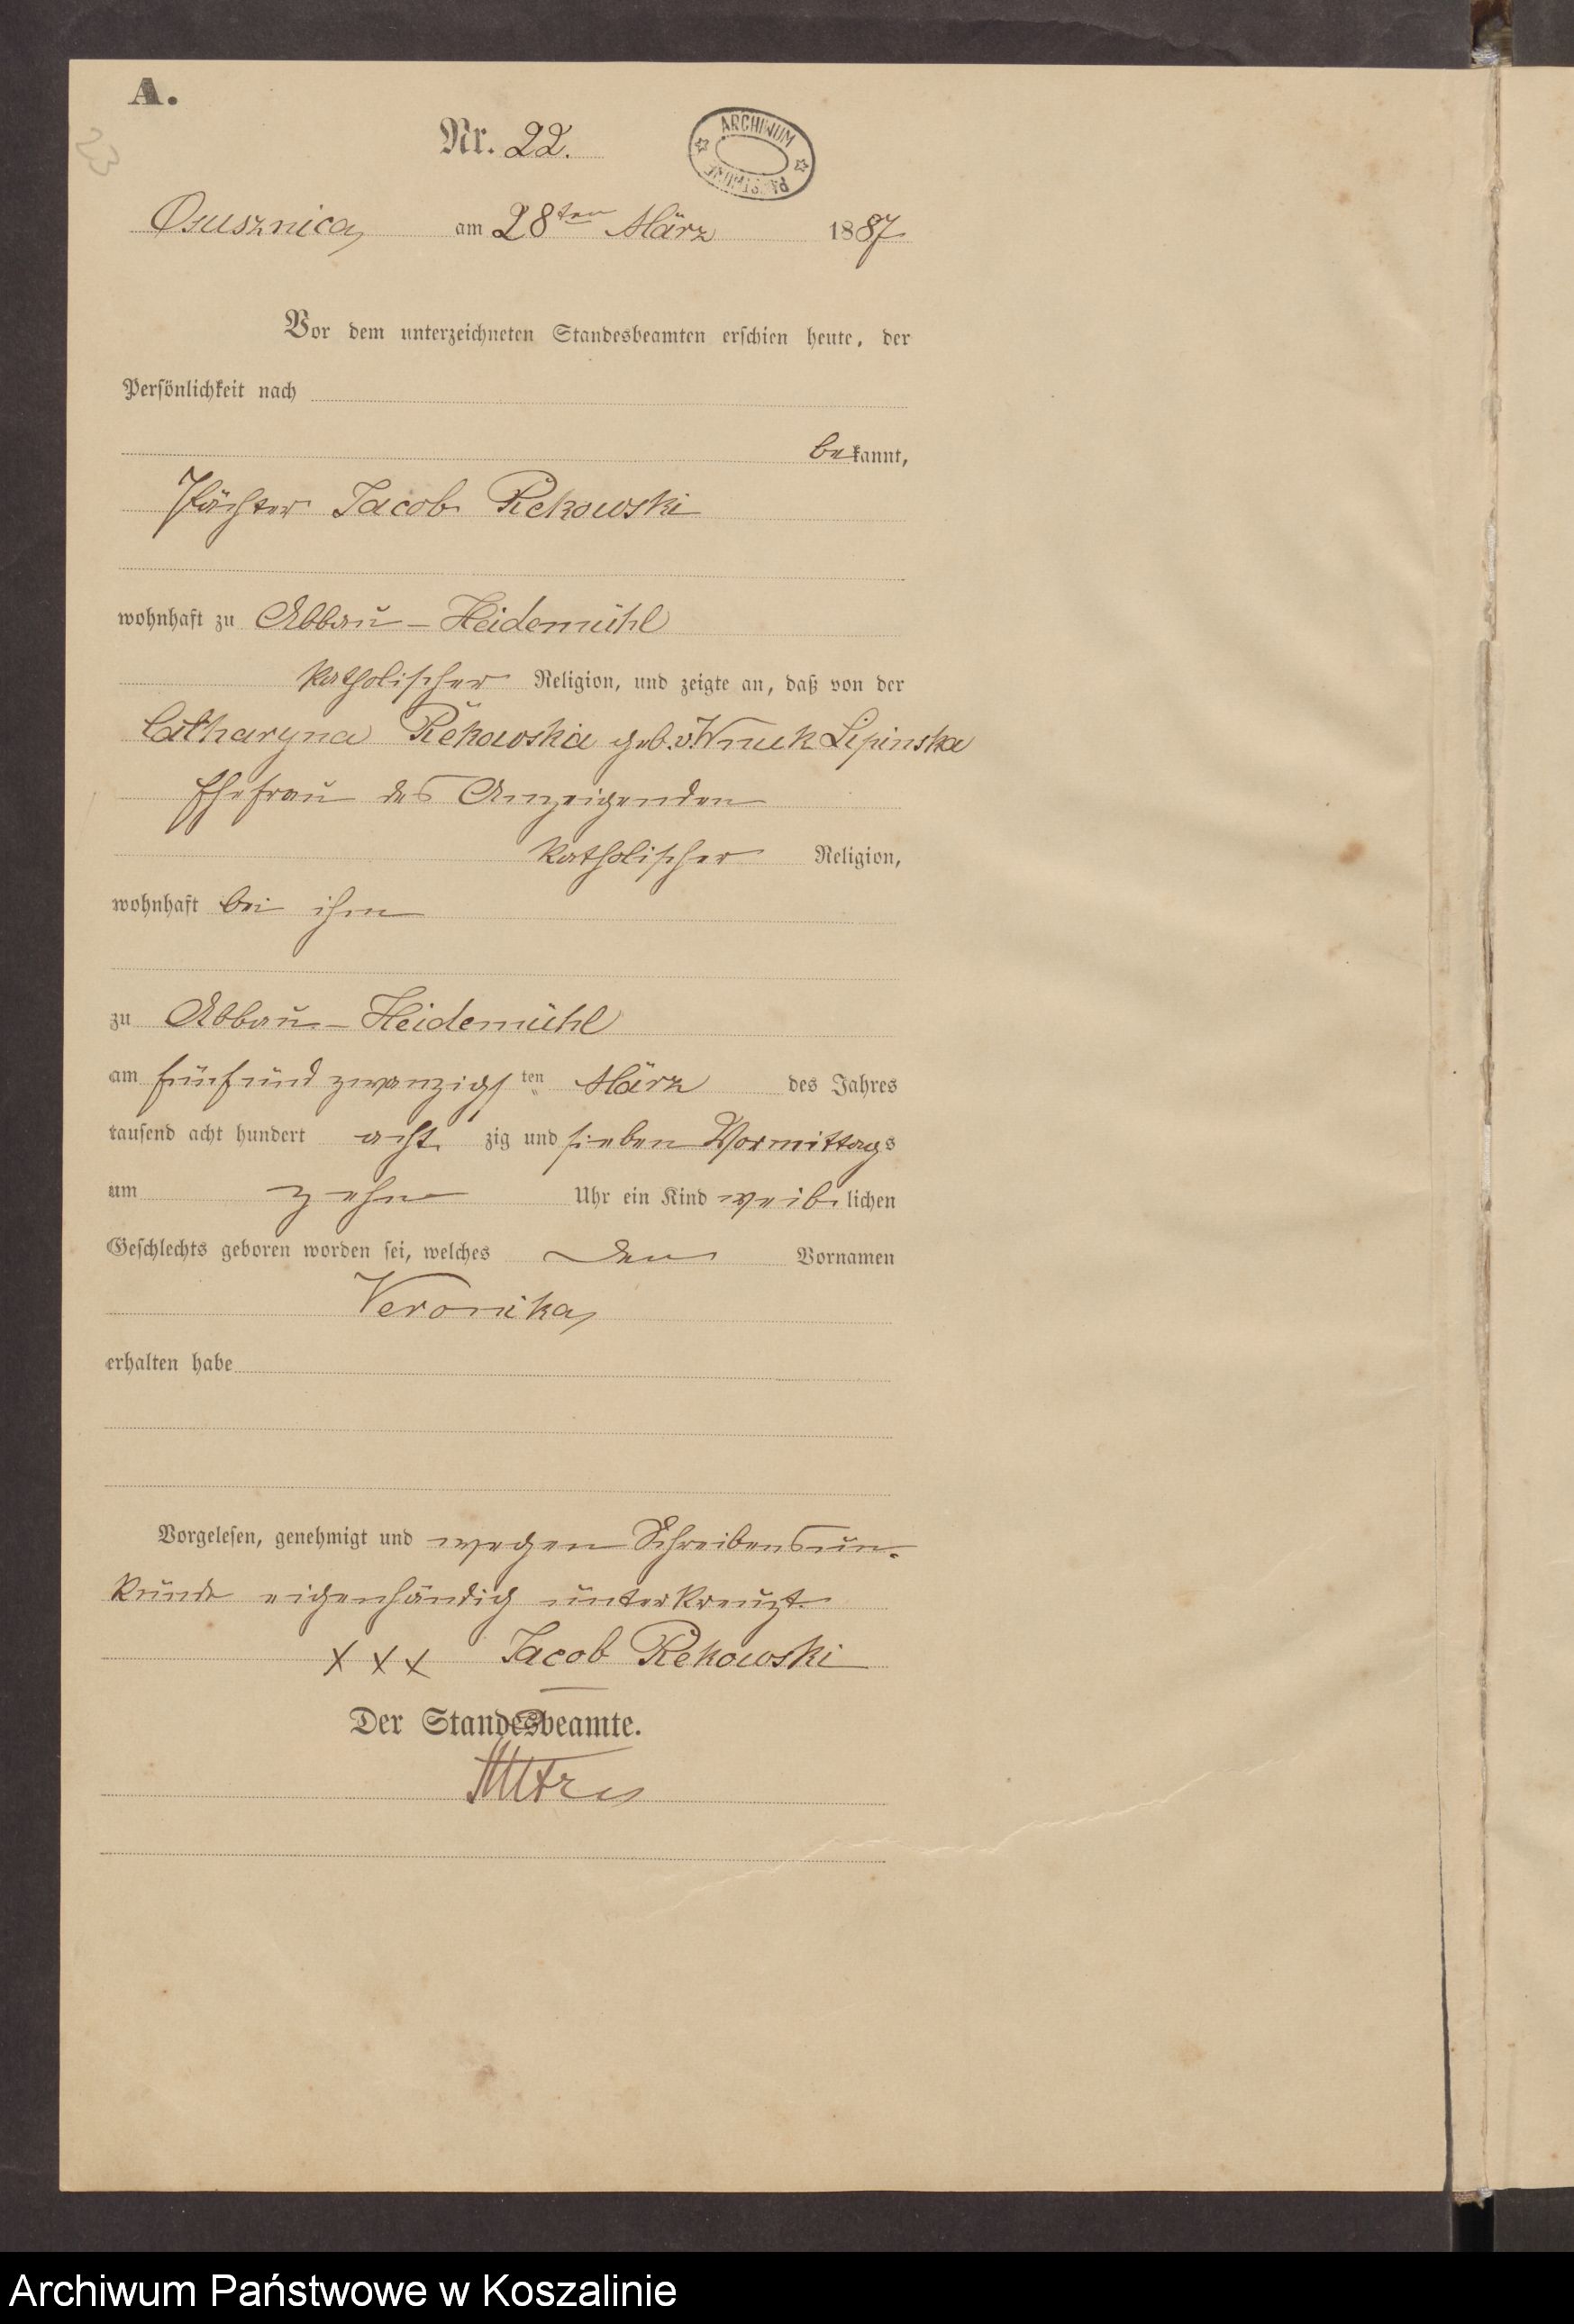 A.
Nr. 22.
ARCHIWUM PAŃSTWOWE
23
Osusznica, am 28ten März 1887
Vor dem unterzeichneten Standesbeamten erschien heute, der
Persönlichkeit nach
bekannt,
Pächter Jacob Rekowski
wohnhaft zu Abbau-Heidemühl
katholischer Religion, und zeigte an, daß von der
Catharyna Rekowska geb. v. Wnuck Lipinska
Ehefrau des Anzeigenden
katholischer Religion,
wohnhaft bei ihm
zu Abbau-Heidemühl
am fünfundzwanzigsten März des Jahres
tausend acht hundert achtzig und sieben Vormittags
um zehn Uhr ein Kind weiblichen
Geschlechts geboren worden sei, welches den Vornamen
Veronika,
erhalten habe
Vorgelesen, genehmigt und wegen Schreibensun-
kunde eigenhändig unterkreuzt.
XXX Jacob Rekowski
Der Standesbeamte.
Archiwum Państwowe w Koszalinie